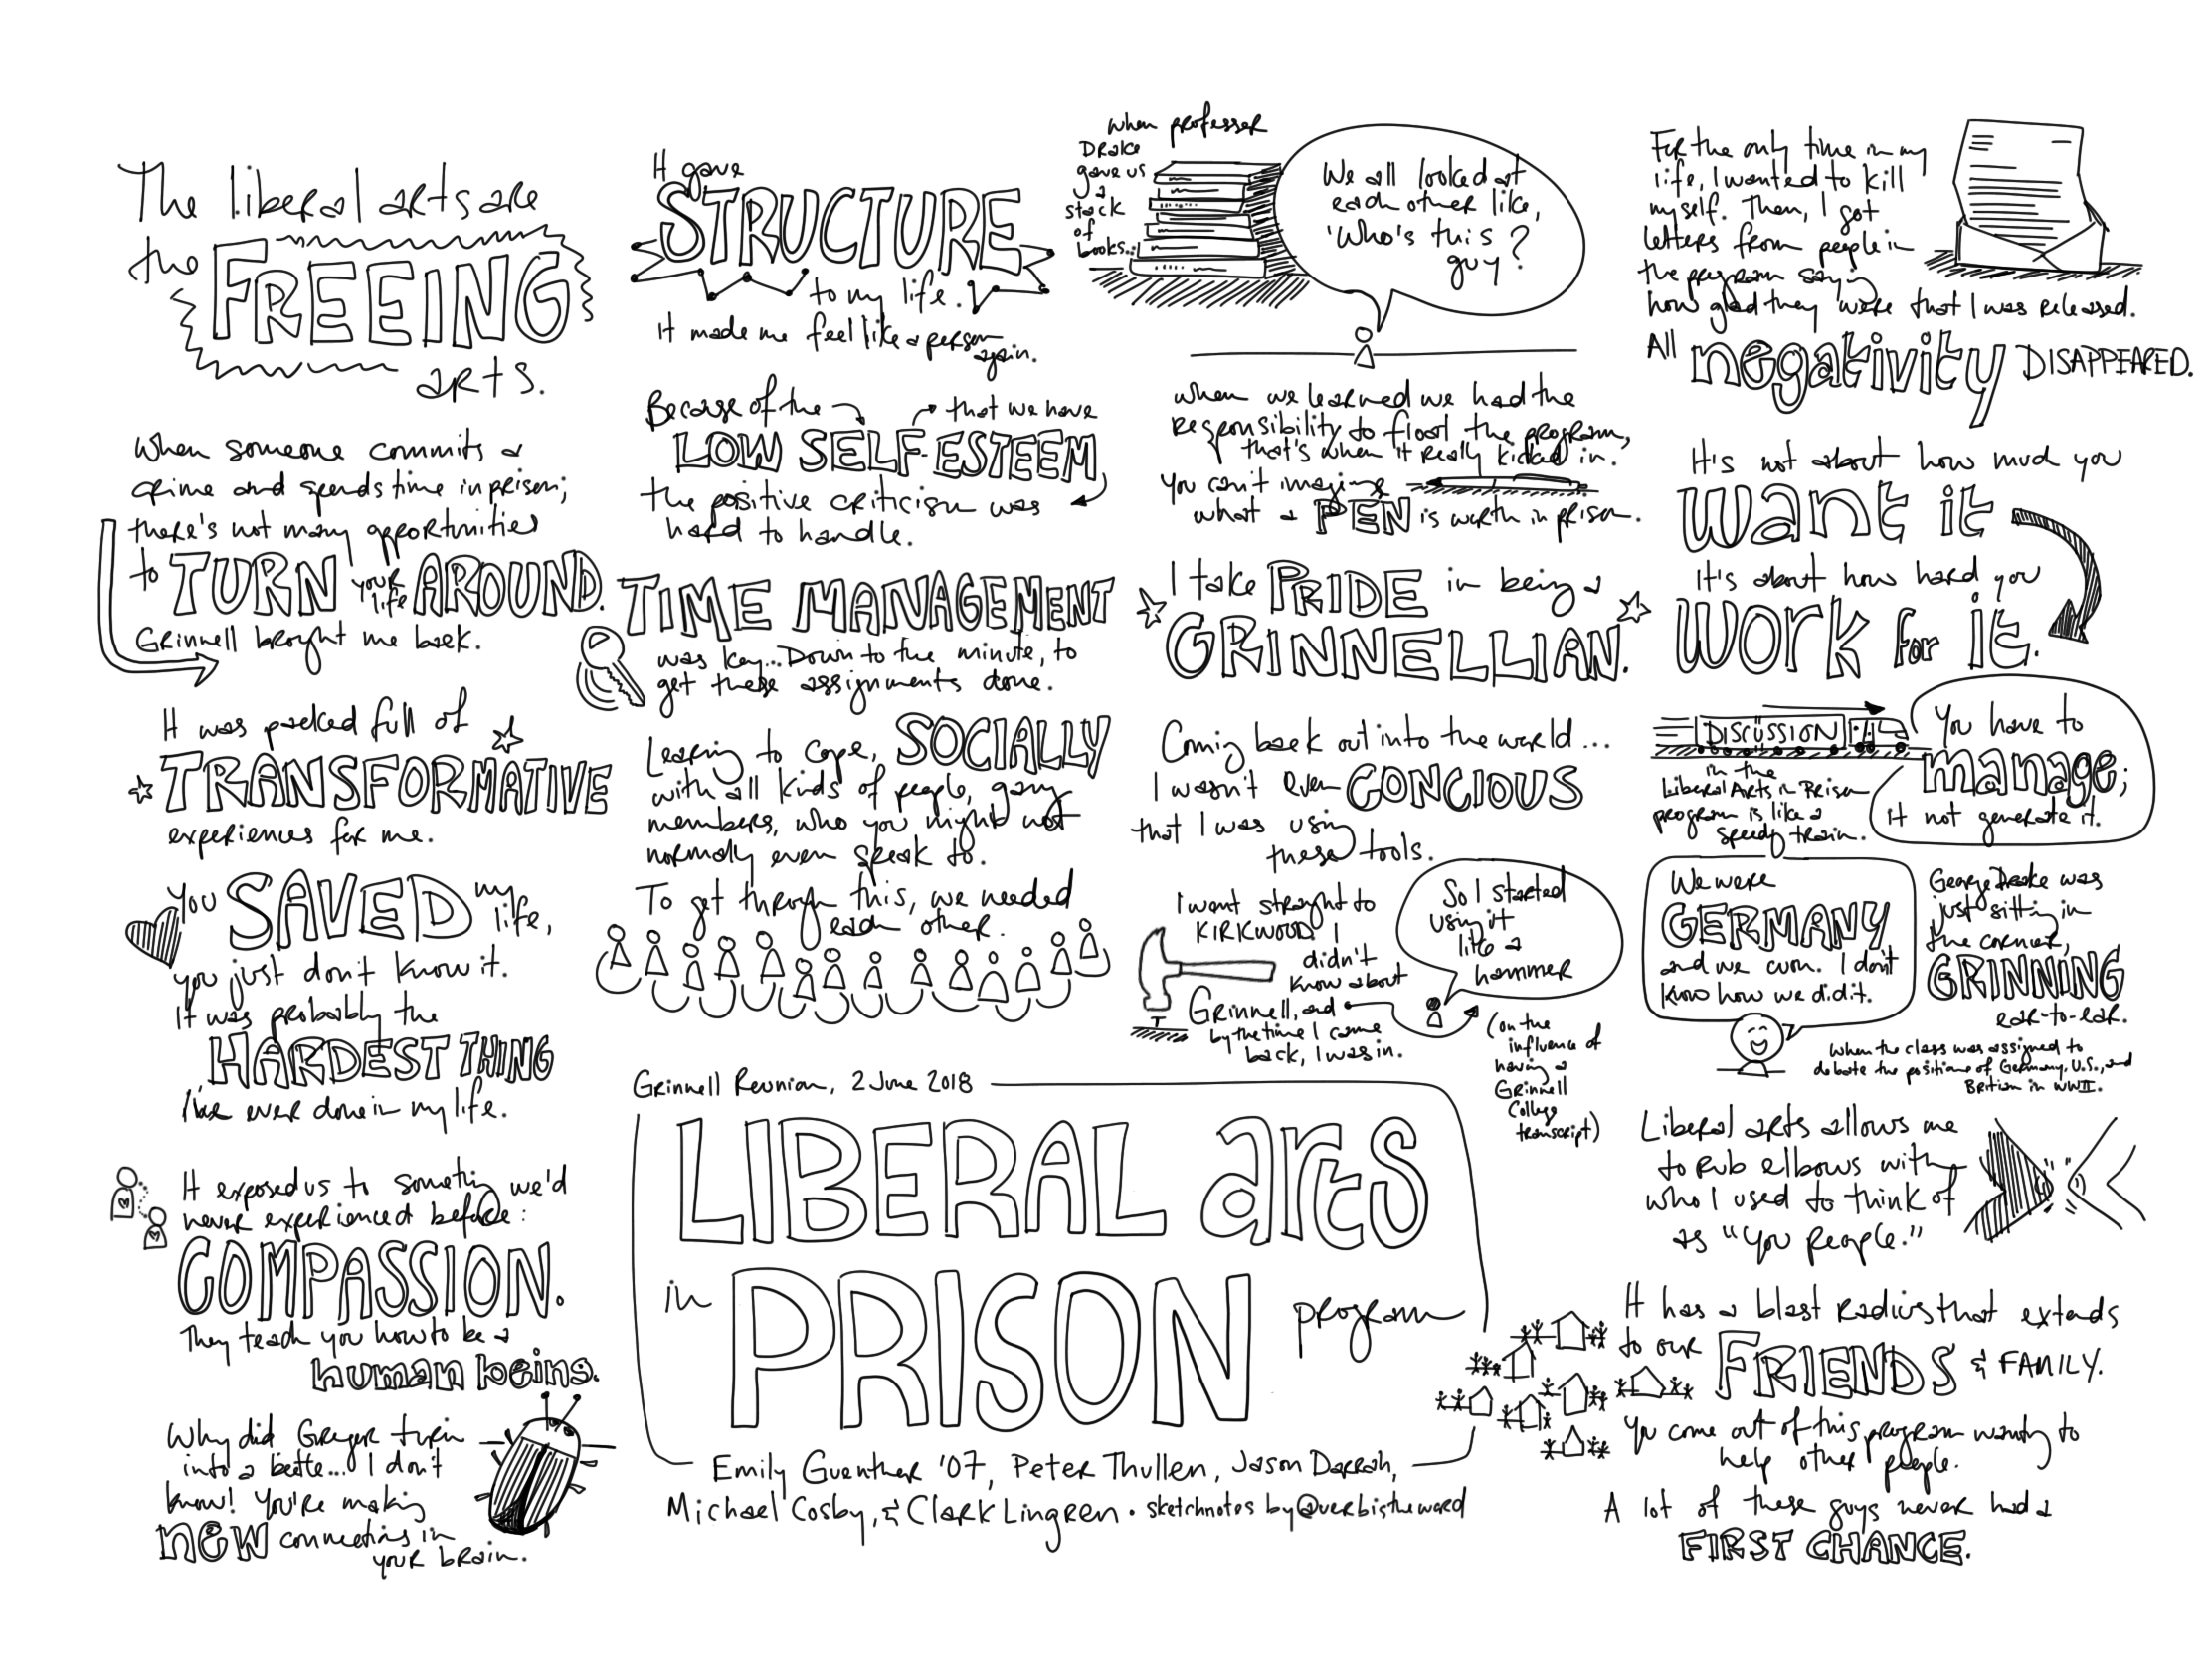 The liberal arts are
the FREEING
arts.
When someone commits a
crime and spends time in prison;
there's not many opportunities
to TURN your life AROUND.
Grinnell brought me back.
It was packed full of
TRANSFORMATIVE
experiences for me.
You SAVED my life,
you just don't know it.
It was probably the
HARDEST THING
I've ever done in my life.
It exposed us to something we'd
never experienced before:
COMPASSION.
They teach you how to be a
human being.
Why did Gregor turn
into a beetle... I don't
know! You're making
new connections in
your brain.
It gave
STRUCTURE
to my life.
It made me feel like a person
again.
Because of the
LOW SELF-ESTEEM
that we have
the positive criticism was
hard to handle.
TIME MANAGEMENT
was key... Down to the minute, to
get these assignments done.
Learning to cope, SOCIALLY
with all kinds of people, gang
members, who you might not
normally even speak to.
To get through this, we needed
each other.
when professor
Drake
gave us
a
stack
of
books...
We all looked at
each other like,
'Who's this ?
guy
when we learned we had the
responsibility to float the program,
that's when it really kicked in.
You can't imagine
what a PEN is worth in prison.
I take PRIDE in being a
GRINNELLIAN.
Coming back out into the world...
I wasn't even CONCIOUS
that I was using
these tools.
I went straight to
KIRKWOOD. I
didn't
know about
Grinnell, and
by the time I came
back, I was in.
So I started
using it
like a
hammer
(on the
influence of
having a
Grinnell
College
transcript)
For the only time in my
life, I wanted to kill
myself. Then, I got
letters from people in
the program saying
how glad they were that I was released.
All negativity DISAPPEARED.
It's not about how much you
want it
It's about how hard you
work for it.
DISCUSSION
in the
Liberal Arts in Prison
program is like a
speedy train.
You have to
manage;
it not generate it.
We were
GERMANY
and we won. I don't
know how we did it.
George Drake was
just sitting in
the corner,
GRINNING
ear-to-ear.
When the class was assigned to
debate the positions of Germany, U.S., and
Britian in WWII.
Liberal arts allows me
to rub elbows with
who I used to think of
as "You people."
It has a blast radius that extends
to our FRIENDS & FAMILY.
You come out of this program wanting to
help other people.
A lot of these guys never had a
FIRST CHANCE.
Grinnell Reunion, 2 June 2018
LIBERAL arts
in PRISON program
Emily Guenther '07, Peter Thullen, Jason Darrah,
Michael Cosby, & Clark Lingren • sketchnotes by @verbistheword